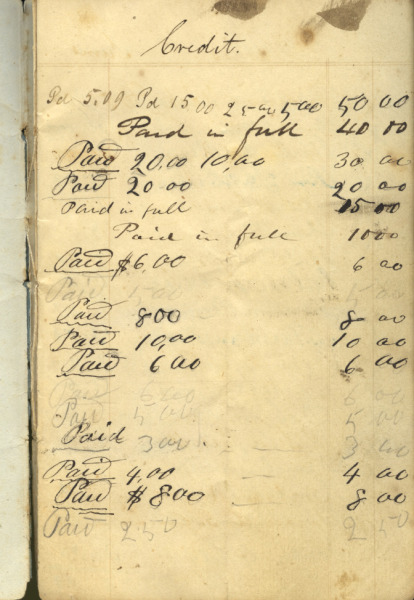 Credit.
Pd 5.09 Pd 15 00 25 00 5 00 50 00
Paid in full 40 00
Paid 20.00 10,00 30 00
Paid 20 00 20 00
Paid in full 15 00
Paid in full 10 00
Paid $6,00 6 00
Paid 5 00 5 00
Paid 8 00 8 00
Paid 10,00 10 00
Paid 6 00 6 00
Paid 6 00 6 00
Paid 5 00 5 00
Paid 3 00 3 00
Paid 4,00 4 00
Paid $8 00 8 00
Paid 2 50 2 50